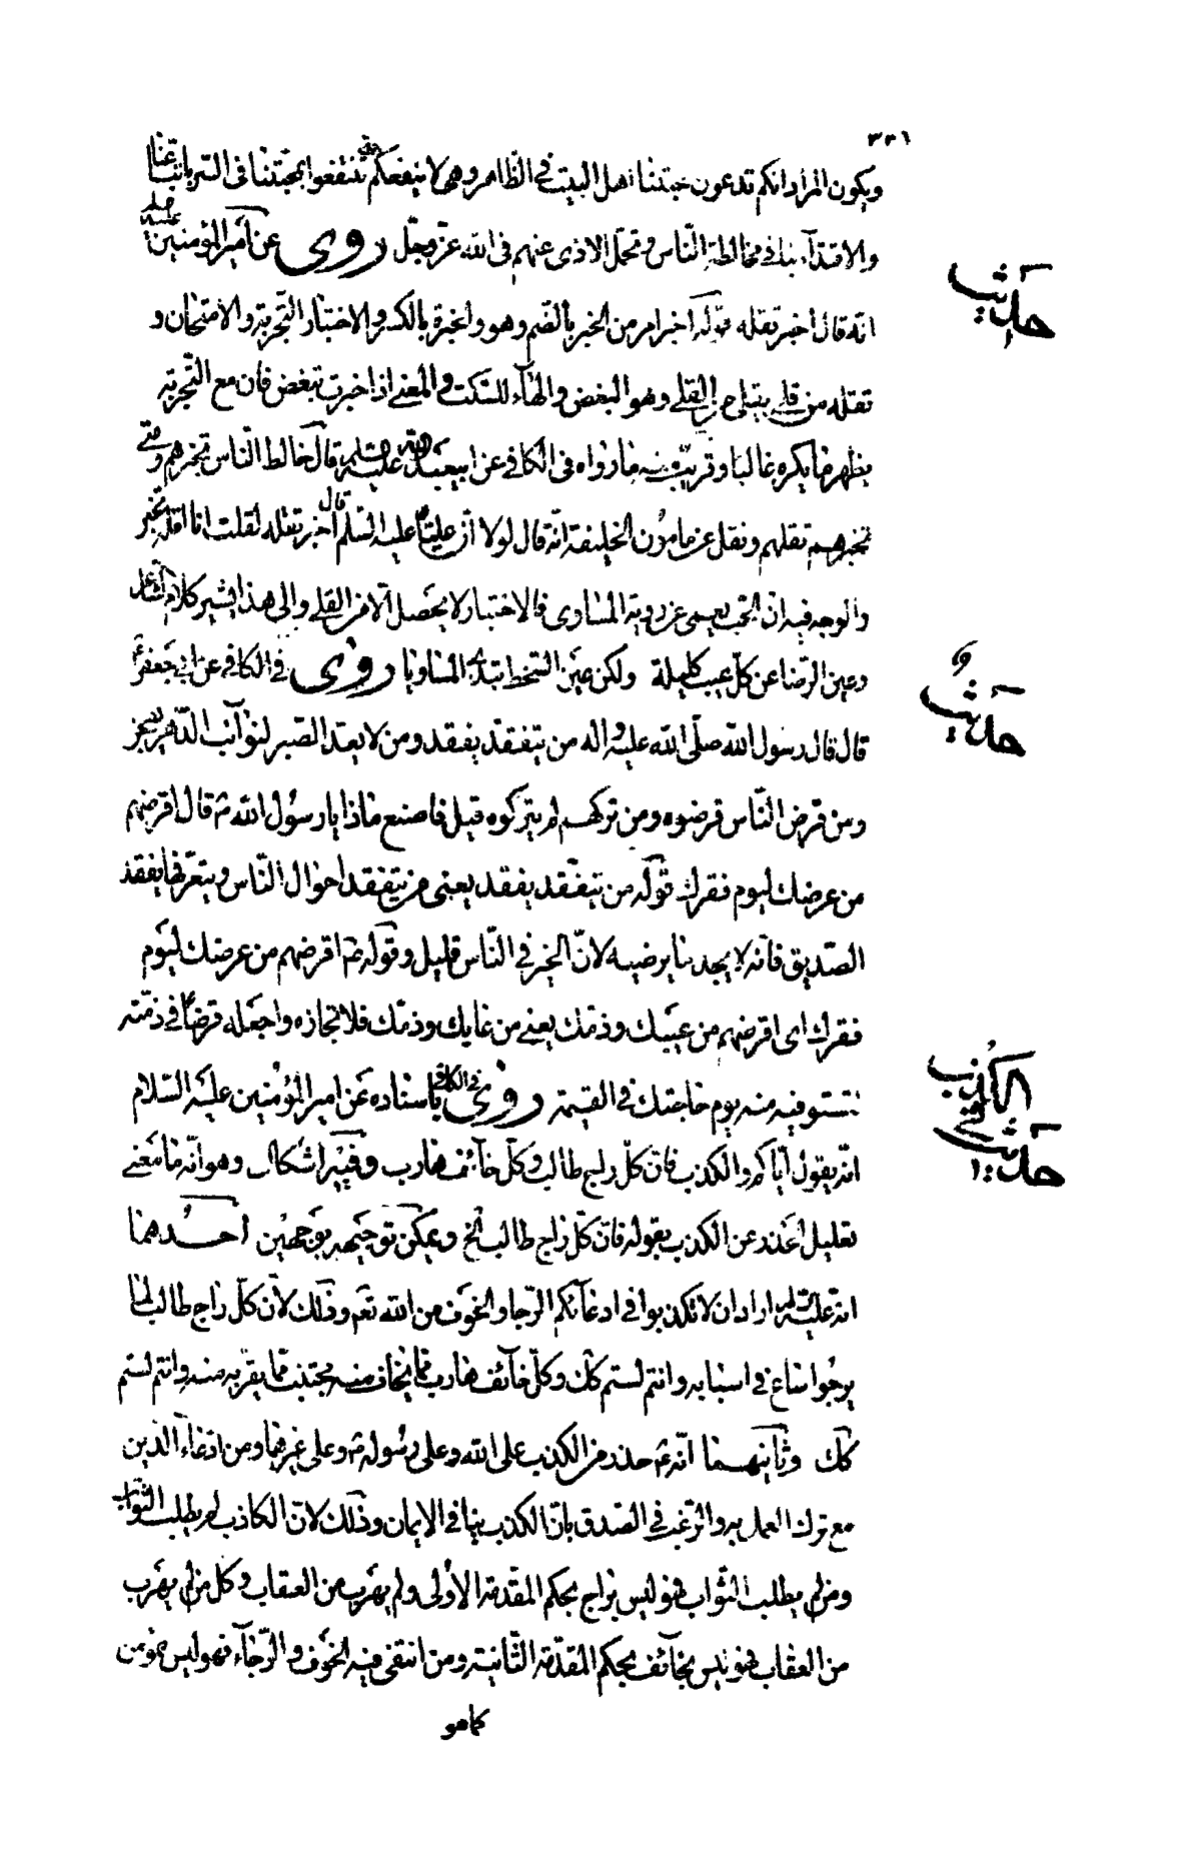 ٣٣٦
ويكون المراد انكم تدعون حبتنا اهل البيت في الظاهر وهي لا ينفعكم حتى تنتفعوا بمحبتنا في السر باتباعنا
والاقتدآء بنا في مخالطة الناس وتحمل الاذى عنهم في الله عزّ وجلّ روى عن امير المؤمنين عليه
حديث
انه قال اخبر تقله قوله اخبر امر من الخبر بالضم وهو والخبرة بالكسر والاختبار التجربة والامتحان و
تقله من قلى يقلى من القلى وهو البغض والهآء للسكت والمعنى اذا خبرت تبغض فان مع التجربة
يظهر ما يكره غالبا وقريب منه ما رواه في الكافي عن ابيعبد الله عليه السلم قال خالط الناس تخبرهم ومتى
تخبرهم تقلهم ونقل عن مامون الخليفة انه قال لولا انّ عليّا عليه السّلم قال اخبر تقله لقلت انا اقله تخبر
والوجه فيه انّ الحبّ يعمى عن رؤية المساوى فالاختبار لا يحصل الّا من القلى والى هذا يشير كلام الشاعر
وعين الرّضا عن كلّ عيب كليلة ولكن عين السّخط تبدى المساويا روى في الكافي عن ابي جعفر ع
و
حديث
قال قال رسول الله صلّى الله عليه واله من يتفقد يفقد ومن لا يعدّ الصّبر لنوآئب الدّهر يعجز
ومن قرض النّاس قرضوه ومن تركهم لم يتركوه قيل فاصنع ماذا يا رسول الله ص قال اقرضهم
من عرضك ليوم فقرك قوله من يتفقد يفقد يعنى من يتفقد احوال النّاس ويتعرّفها يفقد
الصّديق فانّه لا يجد ما يرضيه لانّ الخير في النّاس قليل وقوله ع اقرضهم من عرضك ليوم
فقرك اى اقرضهم من عيبك وذمّك يعنى من عابك وذمّك فلا تجازه واجعله قرضا في ذمّته
لتستوفيه منه يوم حاجتك في القيمة روى في الكافي باسناده عن امير المؤمنين عليه السّلام
الكذب
في
حديث
انّه يقول ايّاكم والكذب فانّ كلّ راج طالب وكلّ خآئف هارب وفيه اشكال وهو انّه ما معنى
تعليل الحذر عن الكذب بقوله فانّ كلّ راج طالب الخ ويمكن توجيهه بوجهين احدهما
انّه عليه السلم اراد ان لا تكذبوا في ادعآئكم الرّجا والخوف من الله تعم وذلك لانّ كلّ راج طالب لما
يرجوا ساع في اسبابه وانتم لستم كك وكلّ خآئف هارب ممّا يخاف منه مجتنب ممّا يقرّبه منه وانتم لستم
كك وثانيهما انّه ع حذر من الكذب على الله وعلى رسوله ص وعلى غيرهما ومن ادعآء الدّين
مع ترك العمل به والترغيب في الصّدق بانّ الكذب ينافي الايمان وذلك لانّ الكاذب لم يطلب الثّواب
ومن لم يطلب الثّواب فهو ليس براج بحكم المقدمة الاولى ولم يهرب من العقاب وكل من لم يهرب
من العقاب فهو ليس بخآئف بحكم المقدّمة الثّانية ومن انتفى فيه الخوف والرّجآء فهو ليس بمؤمن
كما هو